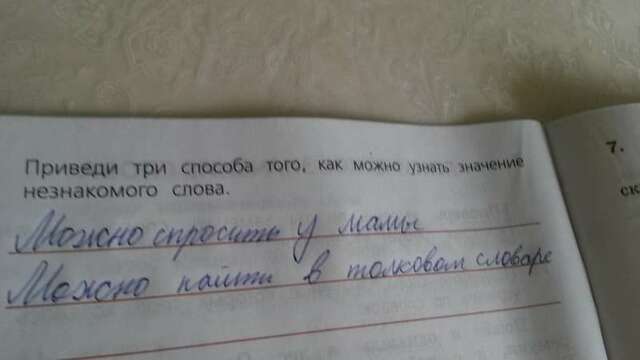 Приведи три способа того, как можно узнать значение
незнакомого слова.
Можно спросить у мамы
Можно найти в толковом словаре
7.
ск